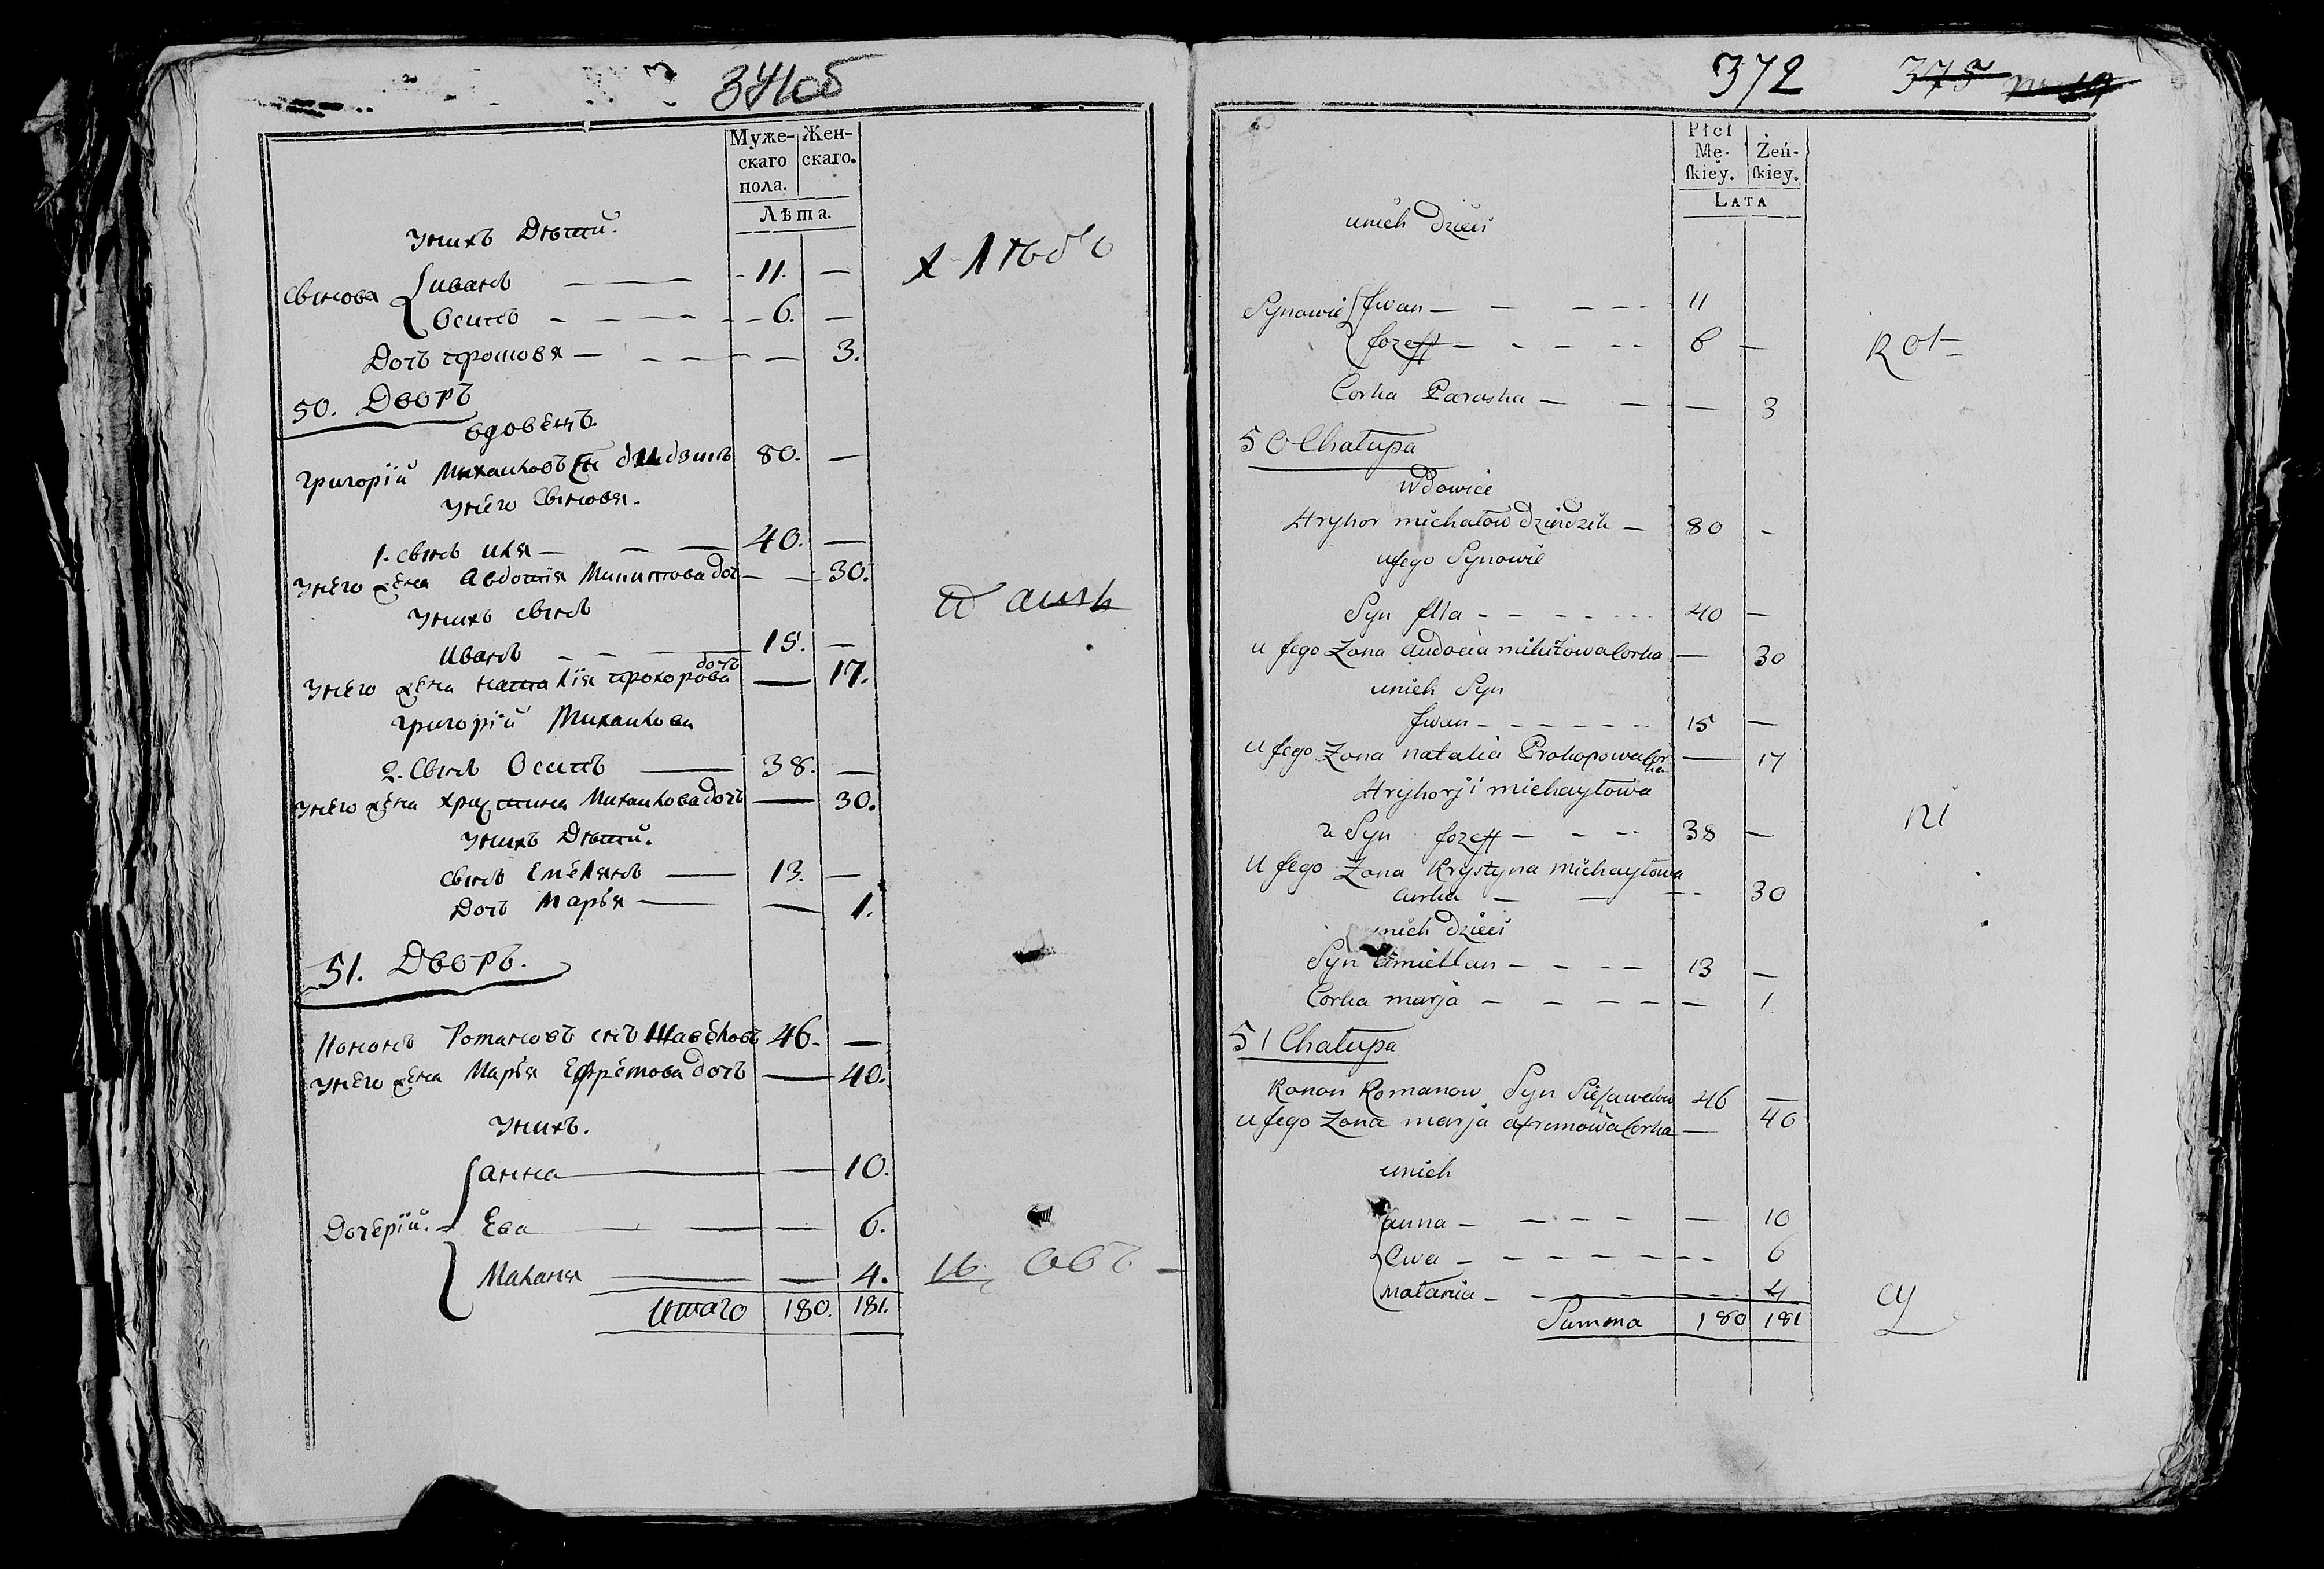 371об
Муже- Жен-
скаго скаго.
пола.
Лѣта.
Унихъ Дѣтй.
Сынова Иванъ 11. —
Осипъ 6. —
Дочъ 3.
50. Дворъ
вдовецъ.
Григорій Михаиловъ 80. —
Унего Сыновя.
1. Сынъ Иля — 40. —
Унего жена Авдотія Микитова доч — 30.
Унихъ Сынъ
Иванъ 15. —
Унего жена Наталія дочъ — 17.
Григорій Михаилова
2. Сынъ Осипъ 38. —
Унего жена Христина Михаилова дочъ — 30.
Унихъ Дѣтй.
Сынъ Емелянъ 13. —
Дочъ Маръя — 1.
51. Дворъ.
Кононъ Романовъ 46. —
Унего жена Маръя Ефремова дочъ — 40.
Унихъ.
Анна — 10.
Дочерій. Ева — 6.
Маланя — 4.
Итаго 180. 181.
372 375
Płci
Mę- Żeń-
ſkiey. ſkiey.
LATA
unich Dzieci
Synowie Jwan — 11
Jozeff — 6 —
Corka Paraska — 3
50 Chałupa
Wdowiec
Hryhor michałow 80 -
ujego Synowie
Syn Jlla 40 —
u Jego Zona audocia mikitowa Corka — 30
unich Syn
Jwan 15 —
u Jego Zona natalia Prokopowa Corka — 17
Hryhorji michayłowa
2 Syn Jozeff — 38 —
u Jego Zona Krystyna michayłowa
Curka — 30
unich dzieci
Syn 13 —
Corka marja — 1.
51 Chałupa
Konon Romanow Syn 46 —
u Jego Zona marja Corka — 40
unich
anna — 10
Ewa — 6
małania — 4
Summa 180 181